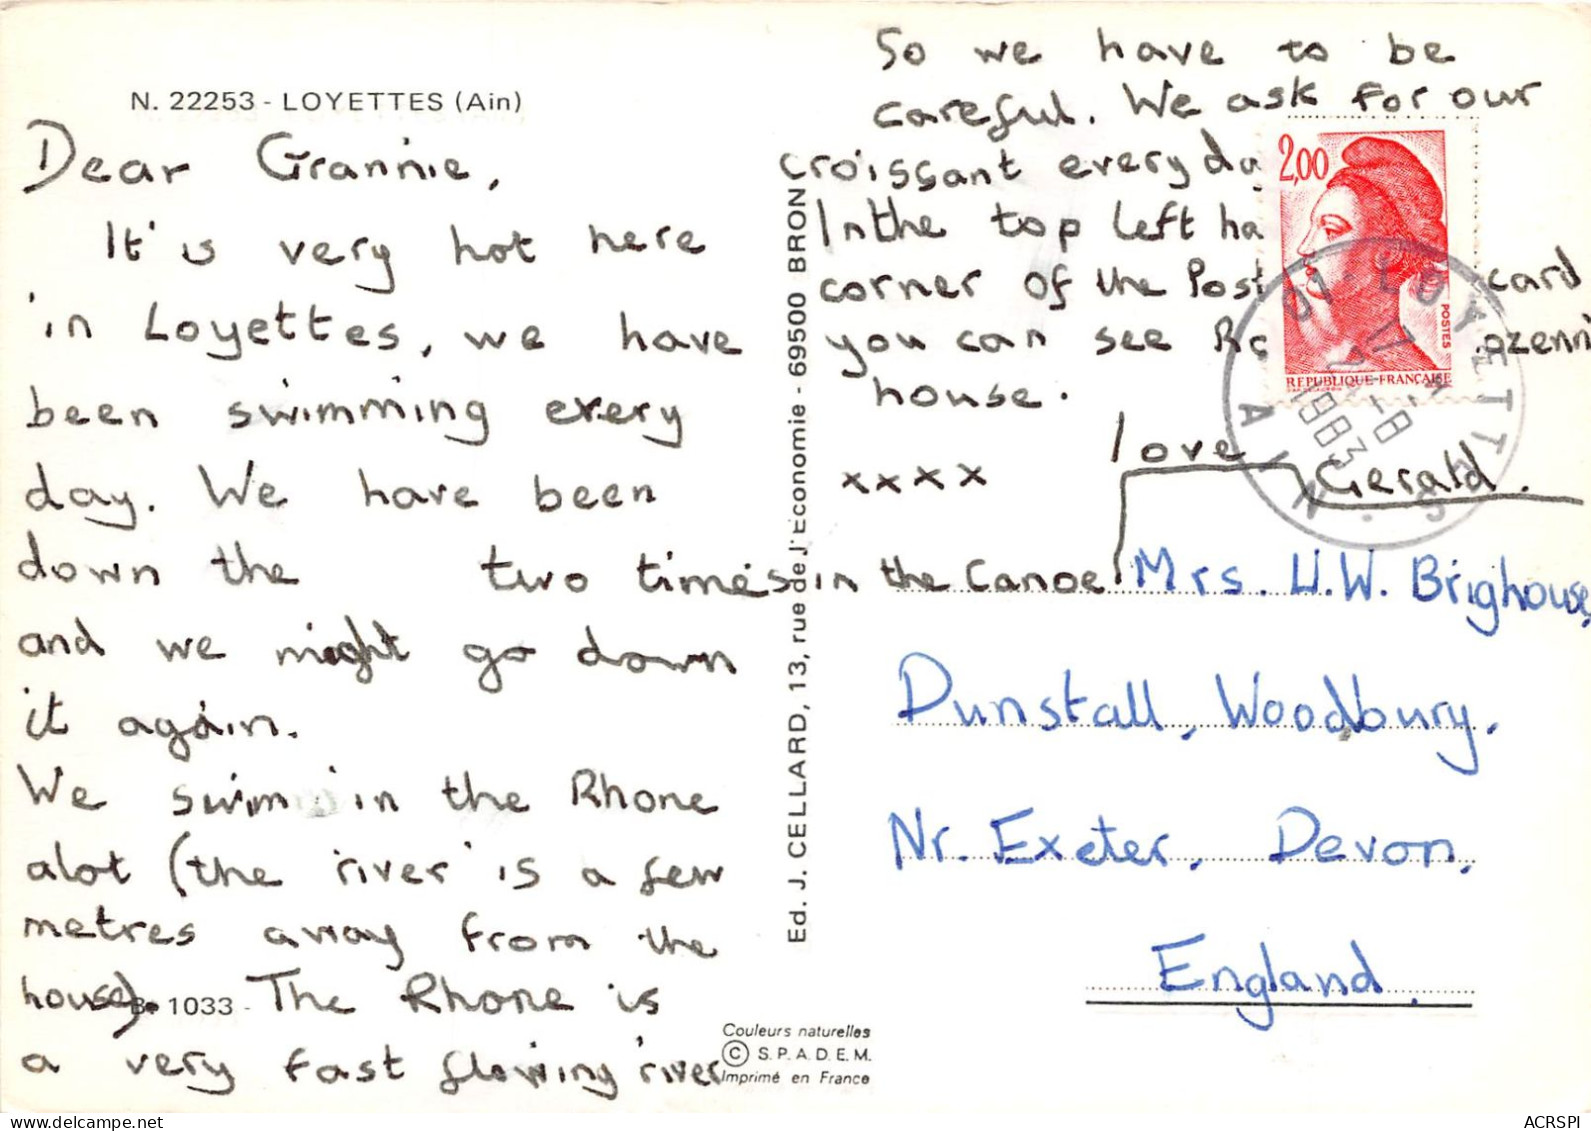 N. 22253 - LOYETTES (Ain)
Dear Grannie,
It's very hot here
in Loyettes, we have
been swimming every
day. We have been
down the two times in the Canoe
and we might go down
it again.
We swim in the Rhone
alot (the river is a few
metres away from the
house). The Rhone is
B. 1033 -
a very fast flowing river
So we have to be
careful. We ask for our
croissant every da
In the top left ha
corner of the Post card
you can see Ro ozenn
house.
love
xxxx Gerald.
Ed. J. CELLARD, 13, rue de l'Economie - 69500 BRON
Couleurs naturelles
© S.P.A.D.E.M.
Imprimé en France
2,00
POSTES
REPUBLIQUE FRANÇAISE
01 - LOYETTES
17 H
2 -8
1983
AIN
Mrs. H.W. Brighouse,
Dunstall, Woodbury.
Nr. Exeter, Devon,
England.
ACRSPI